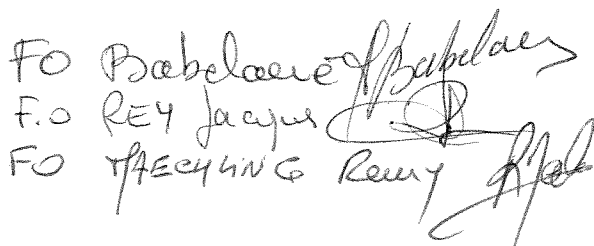 FO Babelaere
F.O REY Jacques
FO MAECHLING Remy